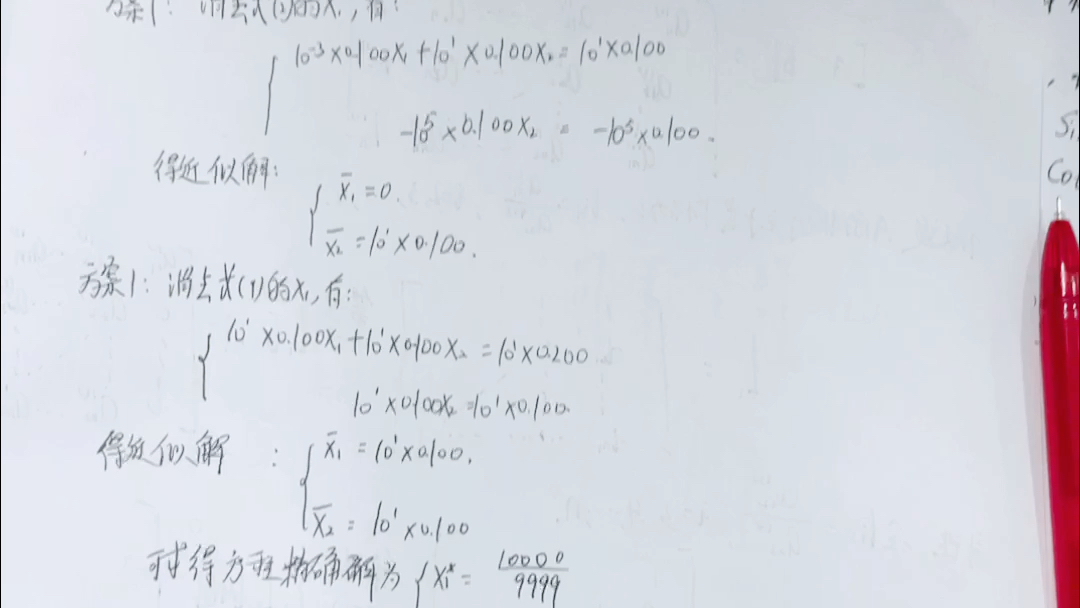 方案1：消去式(2)的X₁,有：
10⁻³×0.100X₁+10¹×0.100X₂=10¹×0.100
-10⁵×0.100X₂ = -10⁵×0.100.
得近似解：
X̅₁=0.
X̅₂=10¹×0.100.
方案1：消去式(1)的X₁,有：
10¹×0.100X₁+10¹×0.100X₂=10¹×0.200
10¹×0.100X₂=10¹×0.100.
得近似解：
X̅₁=10¹×0.100.
X̅₂=10¹×0.100
求得方程精确解为{X₁*= 10000/9999